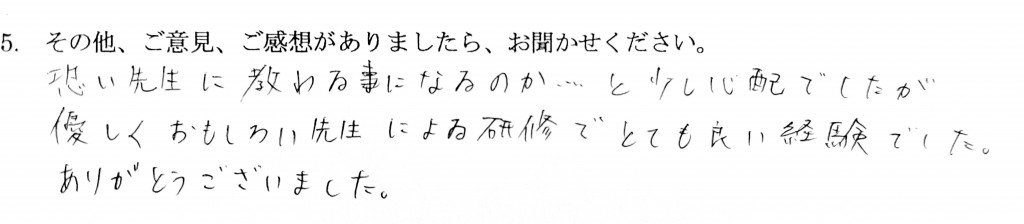 5. その他、ご意見、ご感想がありましたら、お聞かせください。
恐い先生に教わる事になるのか…と少し心配でしたが
優しくおもしろい先生による研修でとても良い経験でした。
ありがとうございました。